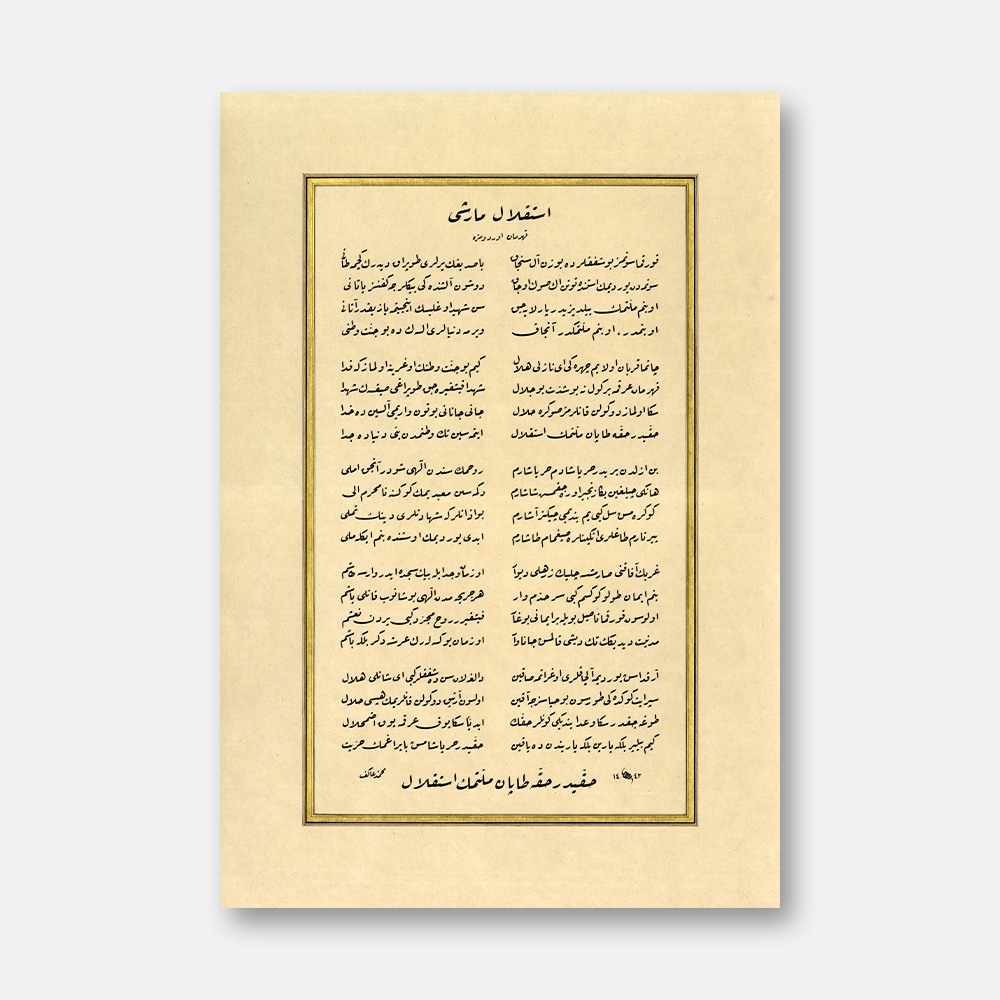 استقلال مارشى
قهرمان اوردومزه
قورقما سونمز بو شفقلرده يوزن آل سنجاق
سونمدن يوردیمك استنده توتن اك صوك اوجاق
او بنم ملتمك ييلديزيدر پارلايه جق
او بنمدر، او بنم ملتمكدر آنجاق
چاتما قربان اولايم چهره كى اى نازلى هلال
قهرمان عرقمه بر كول نه بو شدت بو جلال
سكا اولماز دوكولن قانلرمز صوكره حلال
حقيدر حقه طاپان ملتمك استقلال
بن ازلدن بريدر حر ياشادم حر ياشارم
هانكى چيلغين بكا زنجير اوره جقمش شاشارم
كوكره مش سل كبى يم بندمى چيكنر آشارم
ييرتارم طاغلرى انكينلره صيغمام طاشارم
غربك آفاقنى صارمشسه چليك زرهلى ديوار
بنم ايمان طولو كوكسم كبى سرحدم وار
اولوسون قورقما ناصيل بويله بر ايمانى بوغار
مدنيت ديديكك تك ديشى قالمش جاناوار
آرقداش يورديمه آلچاقلرى اوغراتمه صاقين
سپر ايت كوكدەكى طورسون بو حياسزجه آقين
طوغه جقدر سكا وعد ايتديكى كونلر حقك
كيم بيلير بلكه يارين بلكه ياريندن ده ياقين
باصديغك يرلرى طوپراق ديه رك كچمه طانى
دوشون آلتنده كى بيكلرجه كفنسز ياتانى
سن شهيد اوغليسك اينجيتمه يازيقدر آتانى
ويرمه دنيالرى آلسه ك ده بو جنت وطنى
كيم بو جنت وطنك اوغرينه اولماز كه فدا
شهدا فيشقيره جق طوپراغى صيقسه ك شهدا
جانى جانانى بوتون واريمى آلسين ده خدا
ايتمه سين تك وطنمدن بنى دنياده جدا
روحمك سندن الهى شودر آنجق املى
دكمه سين معبديمك كوكسنه نامحرم الى
بو اذانلر كه شهادتلرى دينك تملى
ابدى يوردیمك اوستنده بنم ايكله ملى
او زمان وجد ايله بيك سجده ايدر وارسه طاشم
هر جريحه مدن الهى بوشانوب قانلى ياشم
فيشقيرر روح مجرد كبى يردن نعشم
او زمان يوكسه لرك عرشه دكر بلكه باشم
دالغلان سن ده شفقلر كبى اى شانلى هلال
اولسون آرتيق دوكولن قانلريمك هپسى حلال
ابديا سكا يوق عرقمه يوق اضمحلال
حقيدر حر ياشامش بايراغمك حريت
حقيدر حقه طاپان ملتمك استقلال
محمد عاكف
١٤٤٣